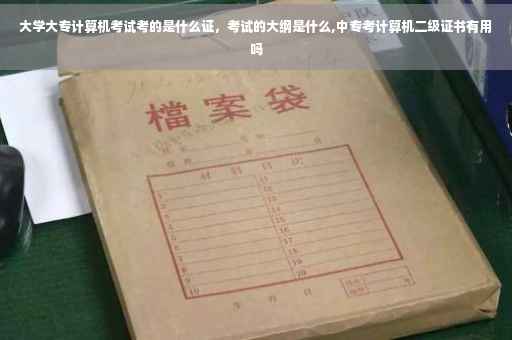 大学大专计算机考试考的是什么证，考试的大纲是什么,中专考计算机二级证书有用
吗
檔案袋
材料目次
1 11
2 12
3 13
4 14
5 15
6 16
7 17
8 18
9 19
10 20
年 月 日